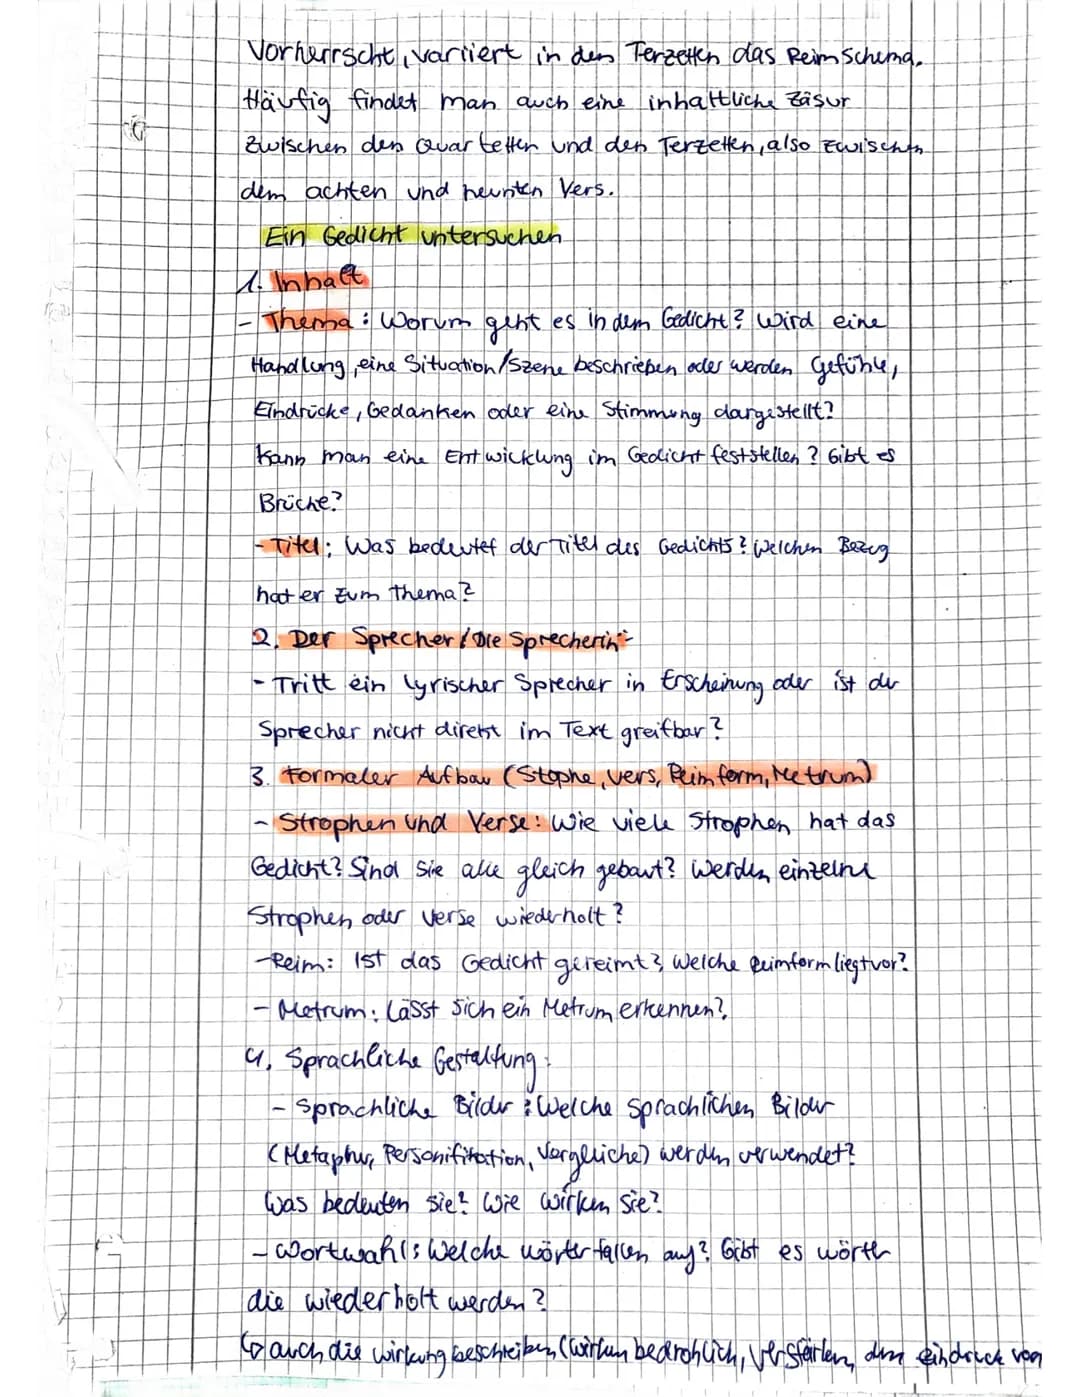 vorherrscht, variiert in den Terzetten das Reimschema.
Häufig findet man auch eine inhaltliche Zäsur
zwischen den Quartetten und den Terzetten, also zwischen
dem achten und neunten Vers.
Ein Gedicht untersuchen
1. Inhalt
- Thema: Worum geht es in dem Gedicht? Wird eine
Handlung, eine Situation/Szene beschrieben oder werden Gefühle,
Eindrücke, Gedanken oder eine Stimmung dargestellt?
Kann man eine Entwicklung im Gedicht feststellen? Gibt es
Brüche?
- Titel: Was bedeutet der Titel des Gedichts? Welchen Bezug
hat er zum Thema?
2. Der Sprecher/Die Sprecherin:
- Tritt ein lyrischer Sprecher in Erscheinung oder ist der
Sprecher nicht direkt im Text greifbar?
3. Formaler Aufbau (Stophe, Vers, Reimform, Metrum)
- Strophen und Verse: Wie viele Strophen hat das
Gedicht? Sind sie alle gleich gebaut? Werden einzelne
Strophen oder Verse wiederholt?
- Reim: Ist das Gedicht gereimt?, Welche Reimform liegt vor?
- Metrum: Lässt sich ein Metrum erkennen?
4. Sprachliche Gestaltung:
- Sprachliche Bilder: Welche sprachlichen Bilder
(Metapher, Personifikation, Vergleiche) werden verwendet?
Was bedeuten sie? Wie wirken sie?
- Wortwahl: Welche Wörter fallen auf? Gibt es Wörter
die wiederholt werden?
↳ auch die Wirkung beschreiben (wirken bedrohlich, verstärken den Eindruck von